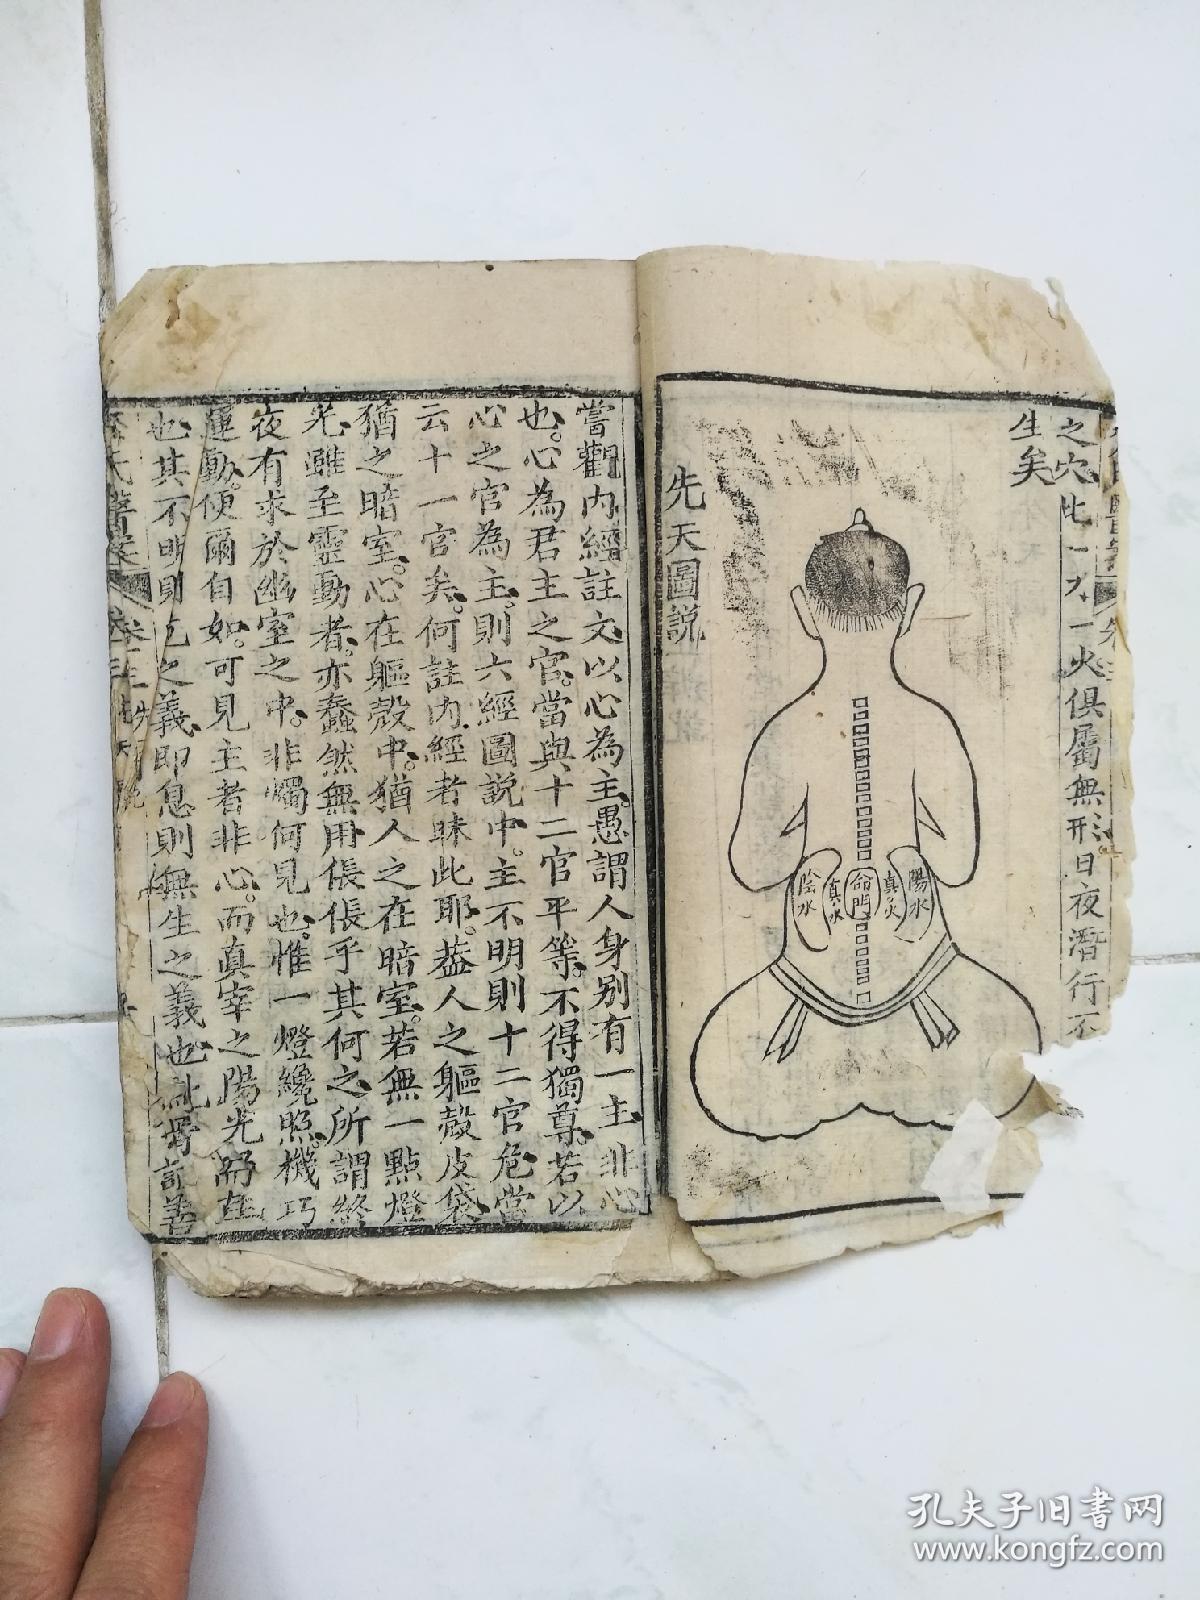 之穴此一水一火俱屬無形日夜潛行不
生矣
陽水
真火
命門
真水
陰水
先天圖説
嘗觀内經註文以心為主愚謂人身别有一主非心
也。心為君主之官。當與十二官平等。不得獨尊。若以
心之官為主。則六經圖説中。主不明則十二官危當
云十一官矣。何註内經者昧此耶。葢人之軀殻皮袋
猶之暗室。心在軀殻中。猶人之在暗室。若無一點燈
光雖至靈動者。亦蠢然無用倀倀乎其何之所謂終
夜有求於幽室之中。非燭何見也。惟一燈纔照。機巧
運動。便爾自如。可見主者非心。而真宰之陽光
也其不明則危之義即息則無生之義也
孔夫子旧書网
www.kongfz.com